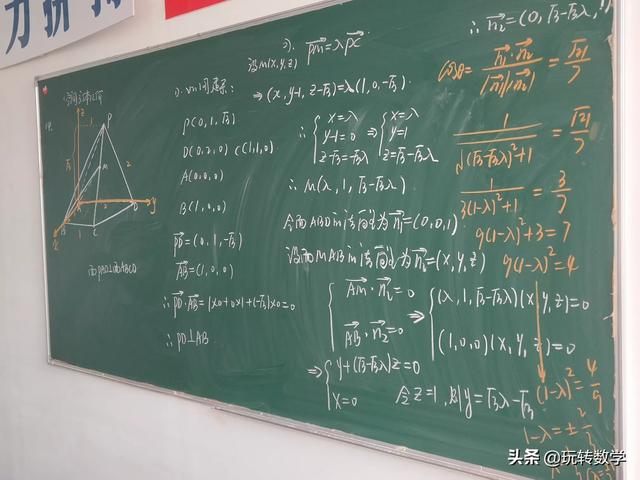 力拼
空间立体几何
19.
面PAD⊥面ABCD
1). Vm1问建系:
P(0,1,√3)
D(0,2,0) C(1,1,0)
A(0,0,0)
B(1,0,0)
PD=(0,1,-√3)
AB=(1,0,0)
∴PD·AB=1×0+0×1+(-√3)×0=0
∴PD⊥AB
2). PM=λPC
设M(x,y,z)
⇒(x,y-1,z-√3)=λ(1,0,-√3)
∴{x=λ ⇒{x=λ
y-1=0 y=1
z-√3=-√3λ z=√3-√3λ
∴M(λ,1,√3-√3λ)
令面ABD的法向量为n₁=(0,0,1)
设面MAB的法向量为n₂=(x,y,z)
{AM·n₂=0 ⇒{(λ,1,√3-√3λ)(x,y,z)=0
AB·n₂=0 (1,0,0)(x,y,z)=0
⇒{y+(√3-√3λ)z=0
x=0 令z=1,则y=√3λ-√3
∴n₂=(0,√3-√3λ,
cosθ=n₁·n₂/|n₁||n₂|=√21/7
1/√((√3-√3λ)²+1)=√21/7
1/(3(1-λ)²+1)=3/7
9(1-λ)²+3=7
9(1-λ)²=4
(1-λ)²=4/9
1-λ=±2/3
头条 @玩转数学